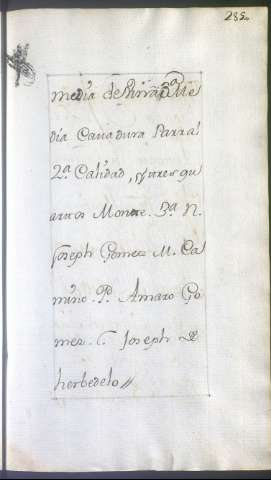 285.
media de Mirrad.ª Me
dia Cavadura Parral
2.ª Calidad, y tres qu
artos Monte. D.ª N.
Joseph Gomez M. Ca
mino. P. Amaro Go
mez. C. Joseph de
herbedelo //